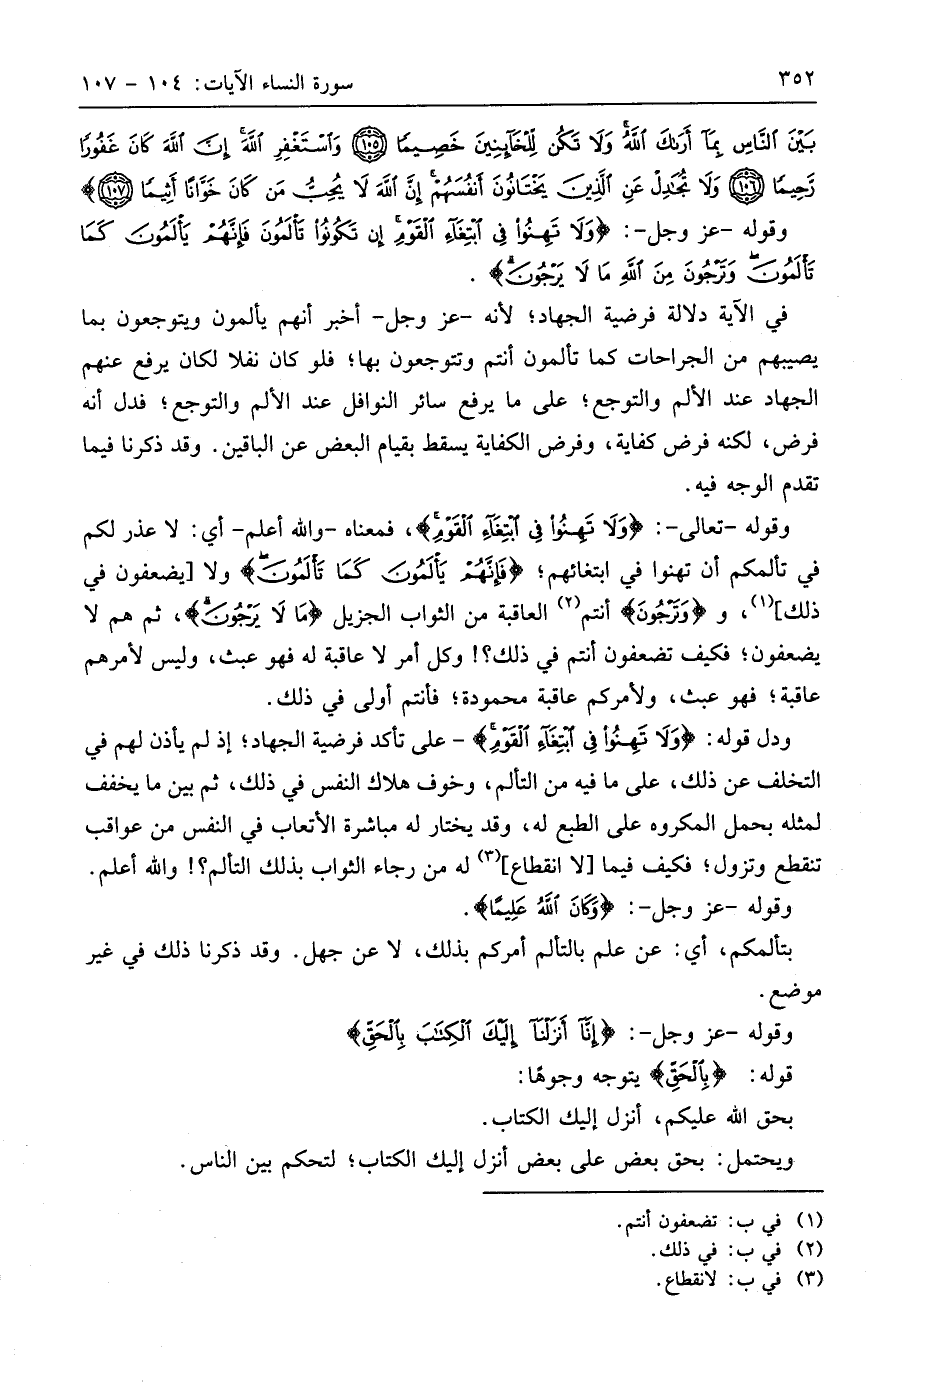 ٣٥٢ سورة النساء الآيات: ١٠٤ - ١٠٧
بَيْنَ ٱلنَّاسِ بِمَآ أَرَىٰكَ ٱللَّهُۚ وَلَا تَكُن لِّلْخَآئِنِينَ خَصِيمًا ﴿١٠٥﴾ وَٱسْتَغْفِرِ ٱللَّهَۖ إِنَّ ٱللَّهَ كَانَ غَفُورًا
رَّحِيمًا ﴿١٠٦﴾ وَلَا تُجَٰدِلْ عَنِ ٱلَّذِينَ يَخْتَانُونَ أَنفُسَهُمْۚ إِنَّ ٱللَّهَ لَا يُحِبُّ مَن كَانَ خَوَّانًا أَثِيمًا ﴿١٠٧﴾﴾
وقوله -عز وجل-: ﴿وَلَا تَهِنُوا۟ فِى ٱبْتِغَآءِ ٱلْقَوْمِۖ إِن تَكُونُوا۟ تَأْلَمُونَ فَإِنَّهُمْ يَأْلَمُونَ كَمَا
تَأْلَمُونَۖ وَتَرْجُونَ مِنَ ٱللَّهِ مَا لَا يَرْجُونَۗ﴾ .
في الآية دلالة فرضية الجهاد؛ لأنه -عز وجل- أخبر أنهم يألمون ويتوجعون بما
يصيبهم من الجراحات كما تألمون أنتم وتتوجعون بها؛ فلو كان نفلا لكان يرفع عنهم
الجهاد عند الألم والتوجع؛ على ما يرفع سائر النوافل عند الألم والتوجع؛ فدل أنه
فرض، لكنه فرض كفاية، وفرض الكفاية يسقط بقيام البعض عن الباقين. وقد ذكرنا فيما
تقدم الوجه فيه.
وقوله -تعالى-: ﴿وَلَا تَهِنُوا۟ فِى ٱبْتِغَآءِ ٱلْقَوْمِۖ﴾، فمعناه -والله أعلم- أي: لا عذر لكم
في تألمكم أن تهنوا في ابتغائهم؛ ﴿فَإِنَّهُمْ يَأْلَمُونَ كَمَا تَأْلَمُونَۖ﴾ ولا [يضعفون في
ذلك](١)، و ﴿وَتَرْجُونَ﴾ أنتم(٢) العاقبة من الثواب الجزيل ﴿مَا لَا يَرْجُونَۗ﴾، ثم هم لا
يضعفون؛ فكيف تضعفون أنتم في ذلك؟! وكل أمر لا عاقبة له فهو عبث، وليس لأمرهم
عاقبة؛ فهو عبث، ولأمركم عاقبة محمودة؛ فأنتم أولى في ذلك.
ودل قوله: ﴿وَلَا تَهِنُوا۟ فِى ٱبْتِغَآءِ ٱلْقَوْمِۖ﴾ - على تأكد فرضية الجهاد؛ إذ لم يأذن لهم في
التخلف عن ذلك، على ما فيه من التألم، وخوف هلاك النفس في ذلك، ثم بين ما يخفف
لمثله بحمل المكروه على الطبع له، وقد يختار له مباشرة الأتعاب في النفس من عواقب
تنقطع وتزول؛ فكيف فيما [لا انقطاع](٣) له من رجاء الثواب بذلك التألم؟! والله أعلم.
وقوله -عز وجل-: ﴿وَكَانَ ٱللَّهُ عَلِيمًا﴾.
بتألمكم، أي: عن علم بالتألم أمركم بذلك، لا عن جهل. وقد ذكرنا ذلك في غير
موضع.
وقوله -عز وجل-: ﴿إِنَّآ أَنزَلْنَآ إِلَيْكَ ٱلْكِتَٰبَ بِٱلْحَقِّ﴾
قوله: ﴿بِٱلْحَقِّ﴾ يتوجه وجوهًا:
بحق الله عليكم، أنزل إليك الكتاب.
ويحتمل: بحق بعض على بعض أنزل إليك الكتاب؛ لتحكم بين الناس.
(١) في ب: تضعفون أنتم.
(٢) في ب: في ذلك.
(٣) في ب: لانقطاع.